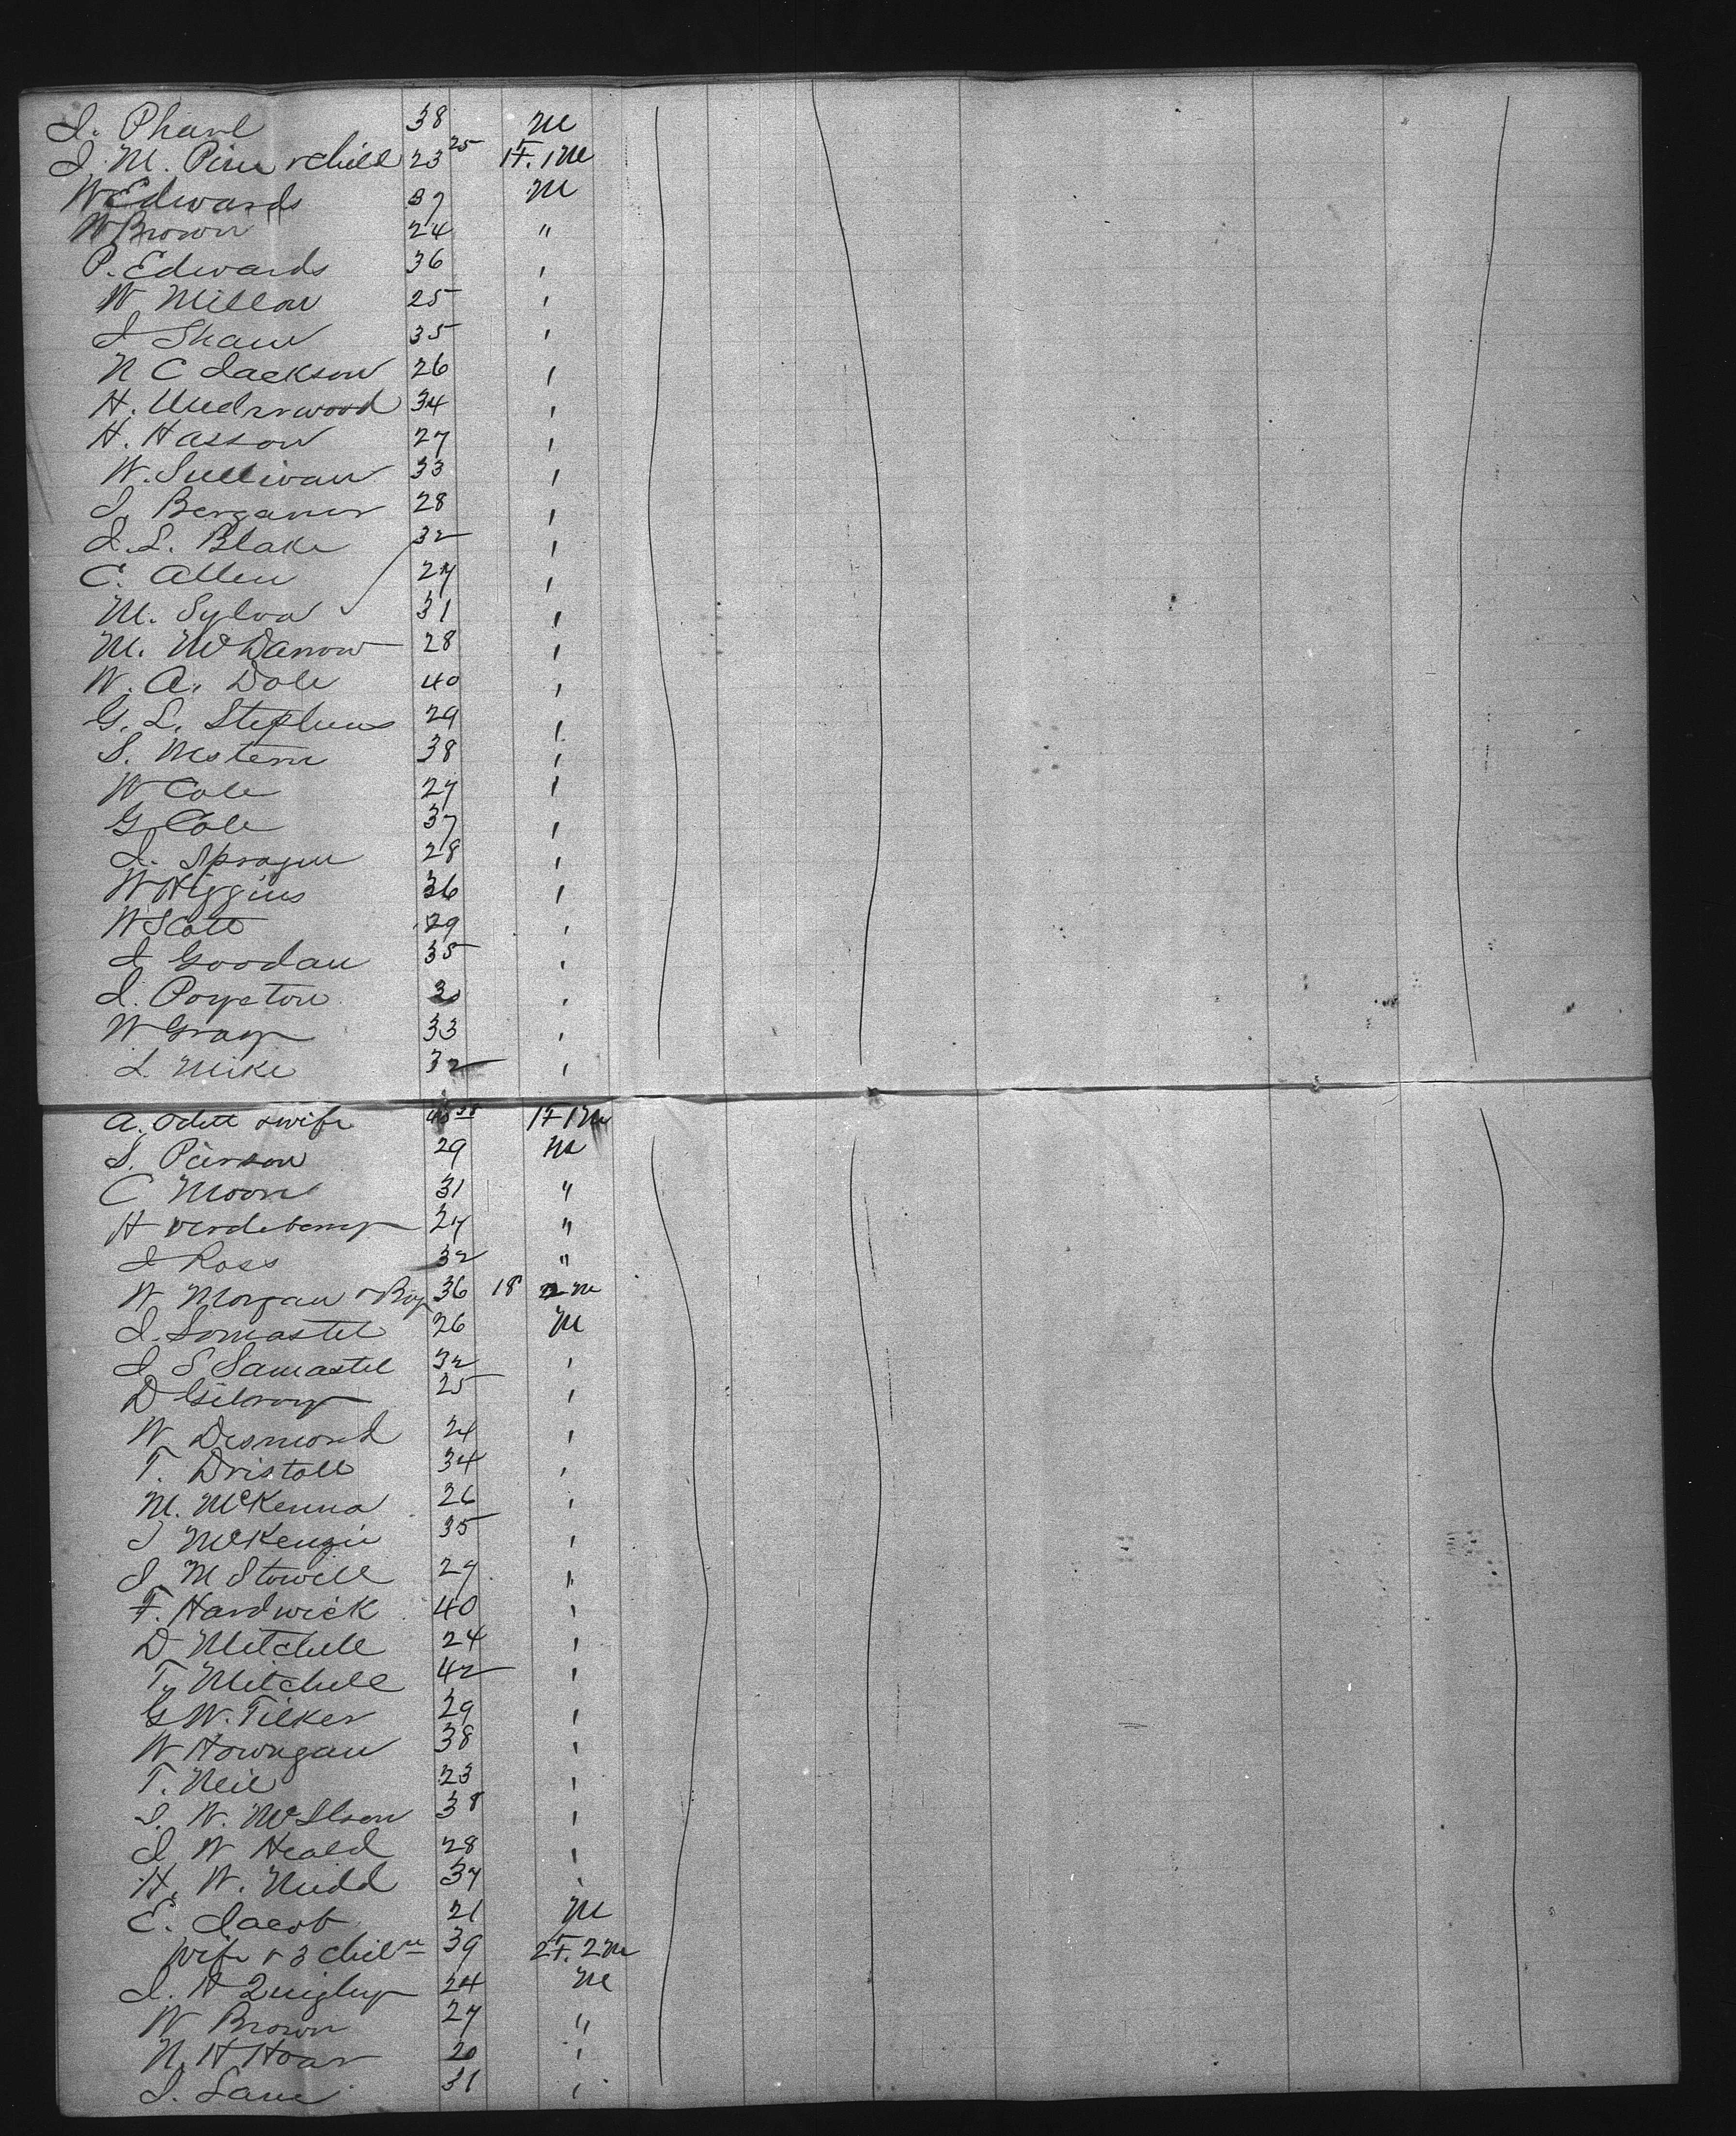 J. Pharl 38 M
J. M. Pirre & child 23 25 1F. 1M
W Edwards 37 M
W Brown 24 "
P. Edwards 36 '
W Millow '25 '
J Shaw 35 '
N C Jackson 26 '
H. Underwood 34 '
H. Hasson 27 '
W. Sullivan 33 '
J. Berganer 28 '
J. L. Blake 32 '
C. Allen 27 '
M. Sylva 31 '
M. McDarrow 28 '
W. A. Dole 40 '
G. L. Stephens 29 '
S. Western 38 '
W Cole 27 '
G Cole 37 '
J. Sprague 28 '
W Higgins 36 '
W Scott 29 '
J Goodan 35 '
J. Poyston 30 '
W Gray 33 '
L. Mike 32 '
A. Odett & wife 38 1F 1M
S. Pierson 29 M
C Moore 31 "
H 27 "
J Ross 32 "
W Morgan & Boy 36 18 2 M
J. Lomastel 26 M
J S Samastel 32 '
D Gilroy 25 '
W Desmond 24 '
T. Dristoll 34 '
M. McKenna 26 '
J McKenzie 35 '
J M Stowell 27 "
F. Hardwick 40 '
D Mitchell 24 '
T. Mitchell 42 '
G W. Tilker 29 '
W Howngan 38 '
T. Neil 23 '
J. W. 38 '
J W Heald 28 '
H. W. Nudd 37 '
E. Jacob 21 M
Wife & 3 chiln 39 2F. 2M
J. H Quigley 24 M
W Brown 27 "
N. H Hoar 30 '
J. Lane 31 '